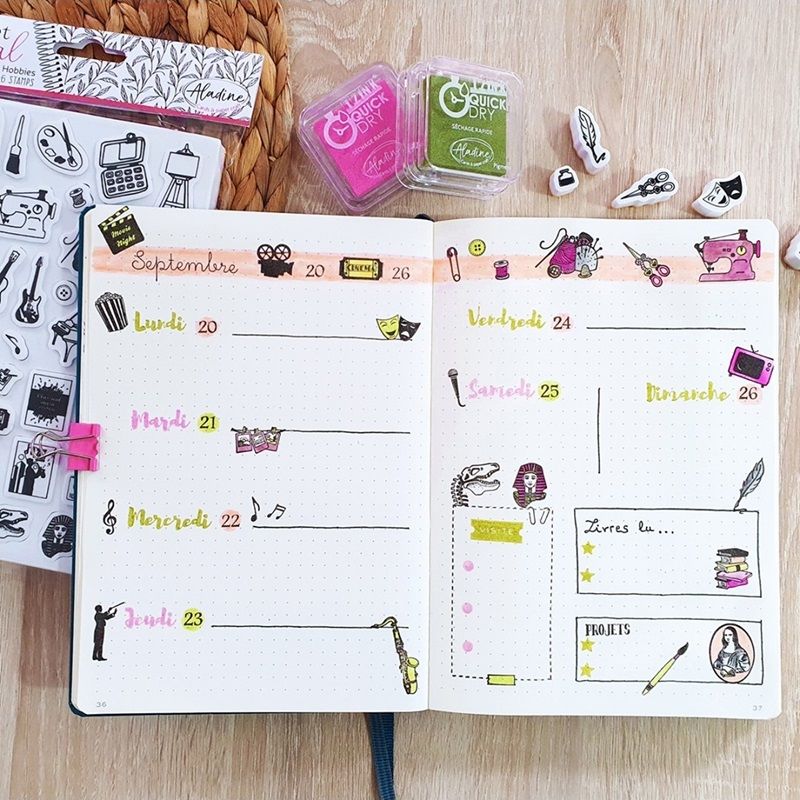 et
al
Hobbies
6 STAMPS
Aladine
IZINK
QUICK
DRY
SÉCHAGE RAPIDE
Aladine
IZINK
QUICK
DRY
SÉCHAGE RAPIDE
Aladine
Movie
Night
Septembre 20 CINEMA 26
Lundi 20
Mardi 21
Mercredi 22
Jeudi 23
36
Vendredi 24
Samedi 25
Dimanche 26
Livres lu...
PROJETS
37